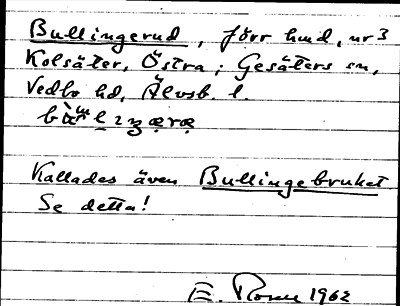 Bullingerud, förr lmd, nr 3
Kolsäter, Östra; Gesäters sn,
Vedbo hd, Älvsb. l.
Kallades även Bullingebruket
Se detta!
E. Rosen 1962